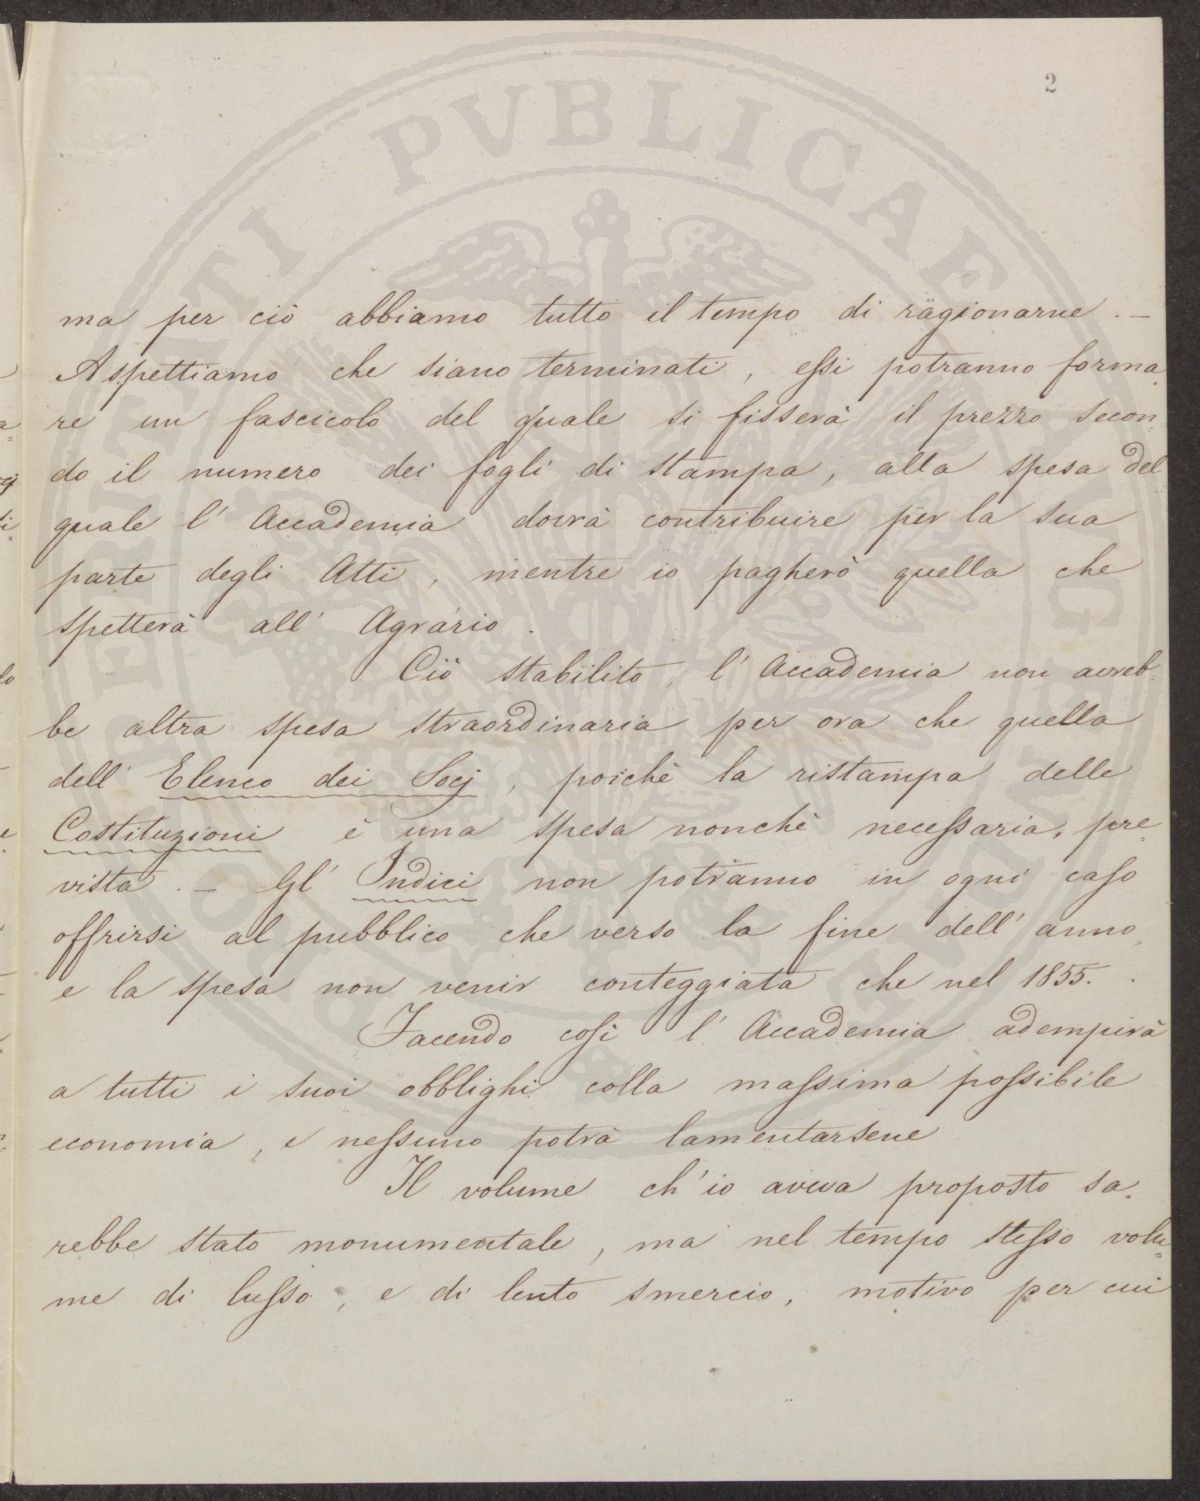 2
ma per ciò abbiamo tutto il tempo di ragionarne . —
Aspettiamo che siano terminati, essi potranno forma-
re un fascicolo del quale si fisserà il prezzo secon-
do il numero dei fogli di stampa, alla spesa del
quale l' Accademia dovrà contribuire per la sua
parte degli Atti, mentre io pagherò quella che
spetterà all' Agrario.
Ciò stabilito, l' Accademia non avreb-
be altra spesa straordinaria per ora che quella
dell' Elenco dei Socj, poichè la ristampa delle
Costituzioni è una spesa nonchè necessaria, pre-
vista. — Gl' Indici non potranno in ogni caso
offrirsi al pubblico che verso la fine dell' anno,
e la spesa non venir conteggiata che nel 1855.
Facendo così l' Accademia adempirà
a tutti i suoi obblighi colla massima possibile
economia, e nessuno potrà lamentarsene
Il volume ch' io aveva proposto sa-
rebbe stato monumentale, ma nel tempo stesso volu-
me di lusso, e di lento smercio, motivo per cui